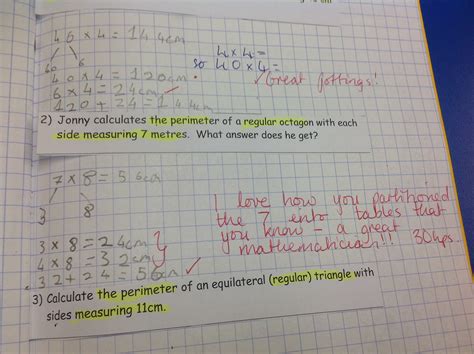 46 x 4 = 144cm
40 6
40 x 4 = 120cm
6 x 4 = 24cm
120 + 24 = 144cm
4 x 4 =
so 40 x 4 =
✓ Great jottings!
2) Jonny calculates the perimeter of a regular octagon with each
side measuring 7 metres. What answer does he get?
7 x 8 = 56cm
3 8
3 x 8 = 24cm
4 x 8 = 32cm
32 + 24 = 56cm ✓
I love how you partitioned
the 7 into tables that
you know – a great
mathematician!! 30hps.
3) Calculate the perimeter of an equilateral (regular) triangle with
sides measuring 11cm.